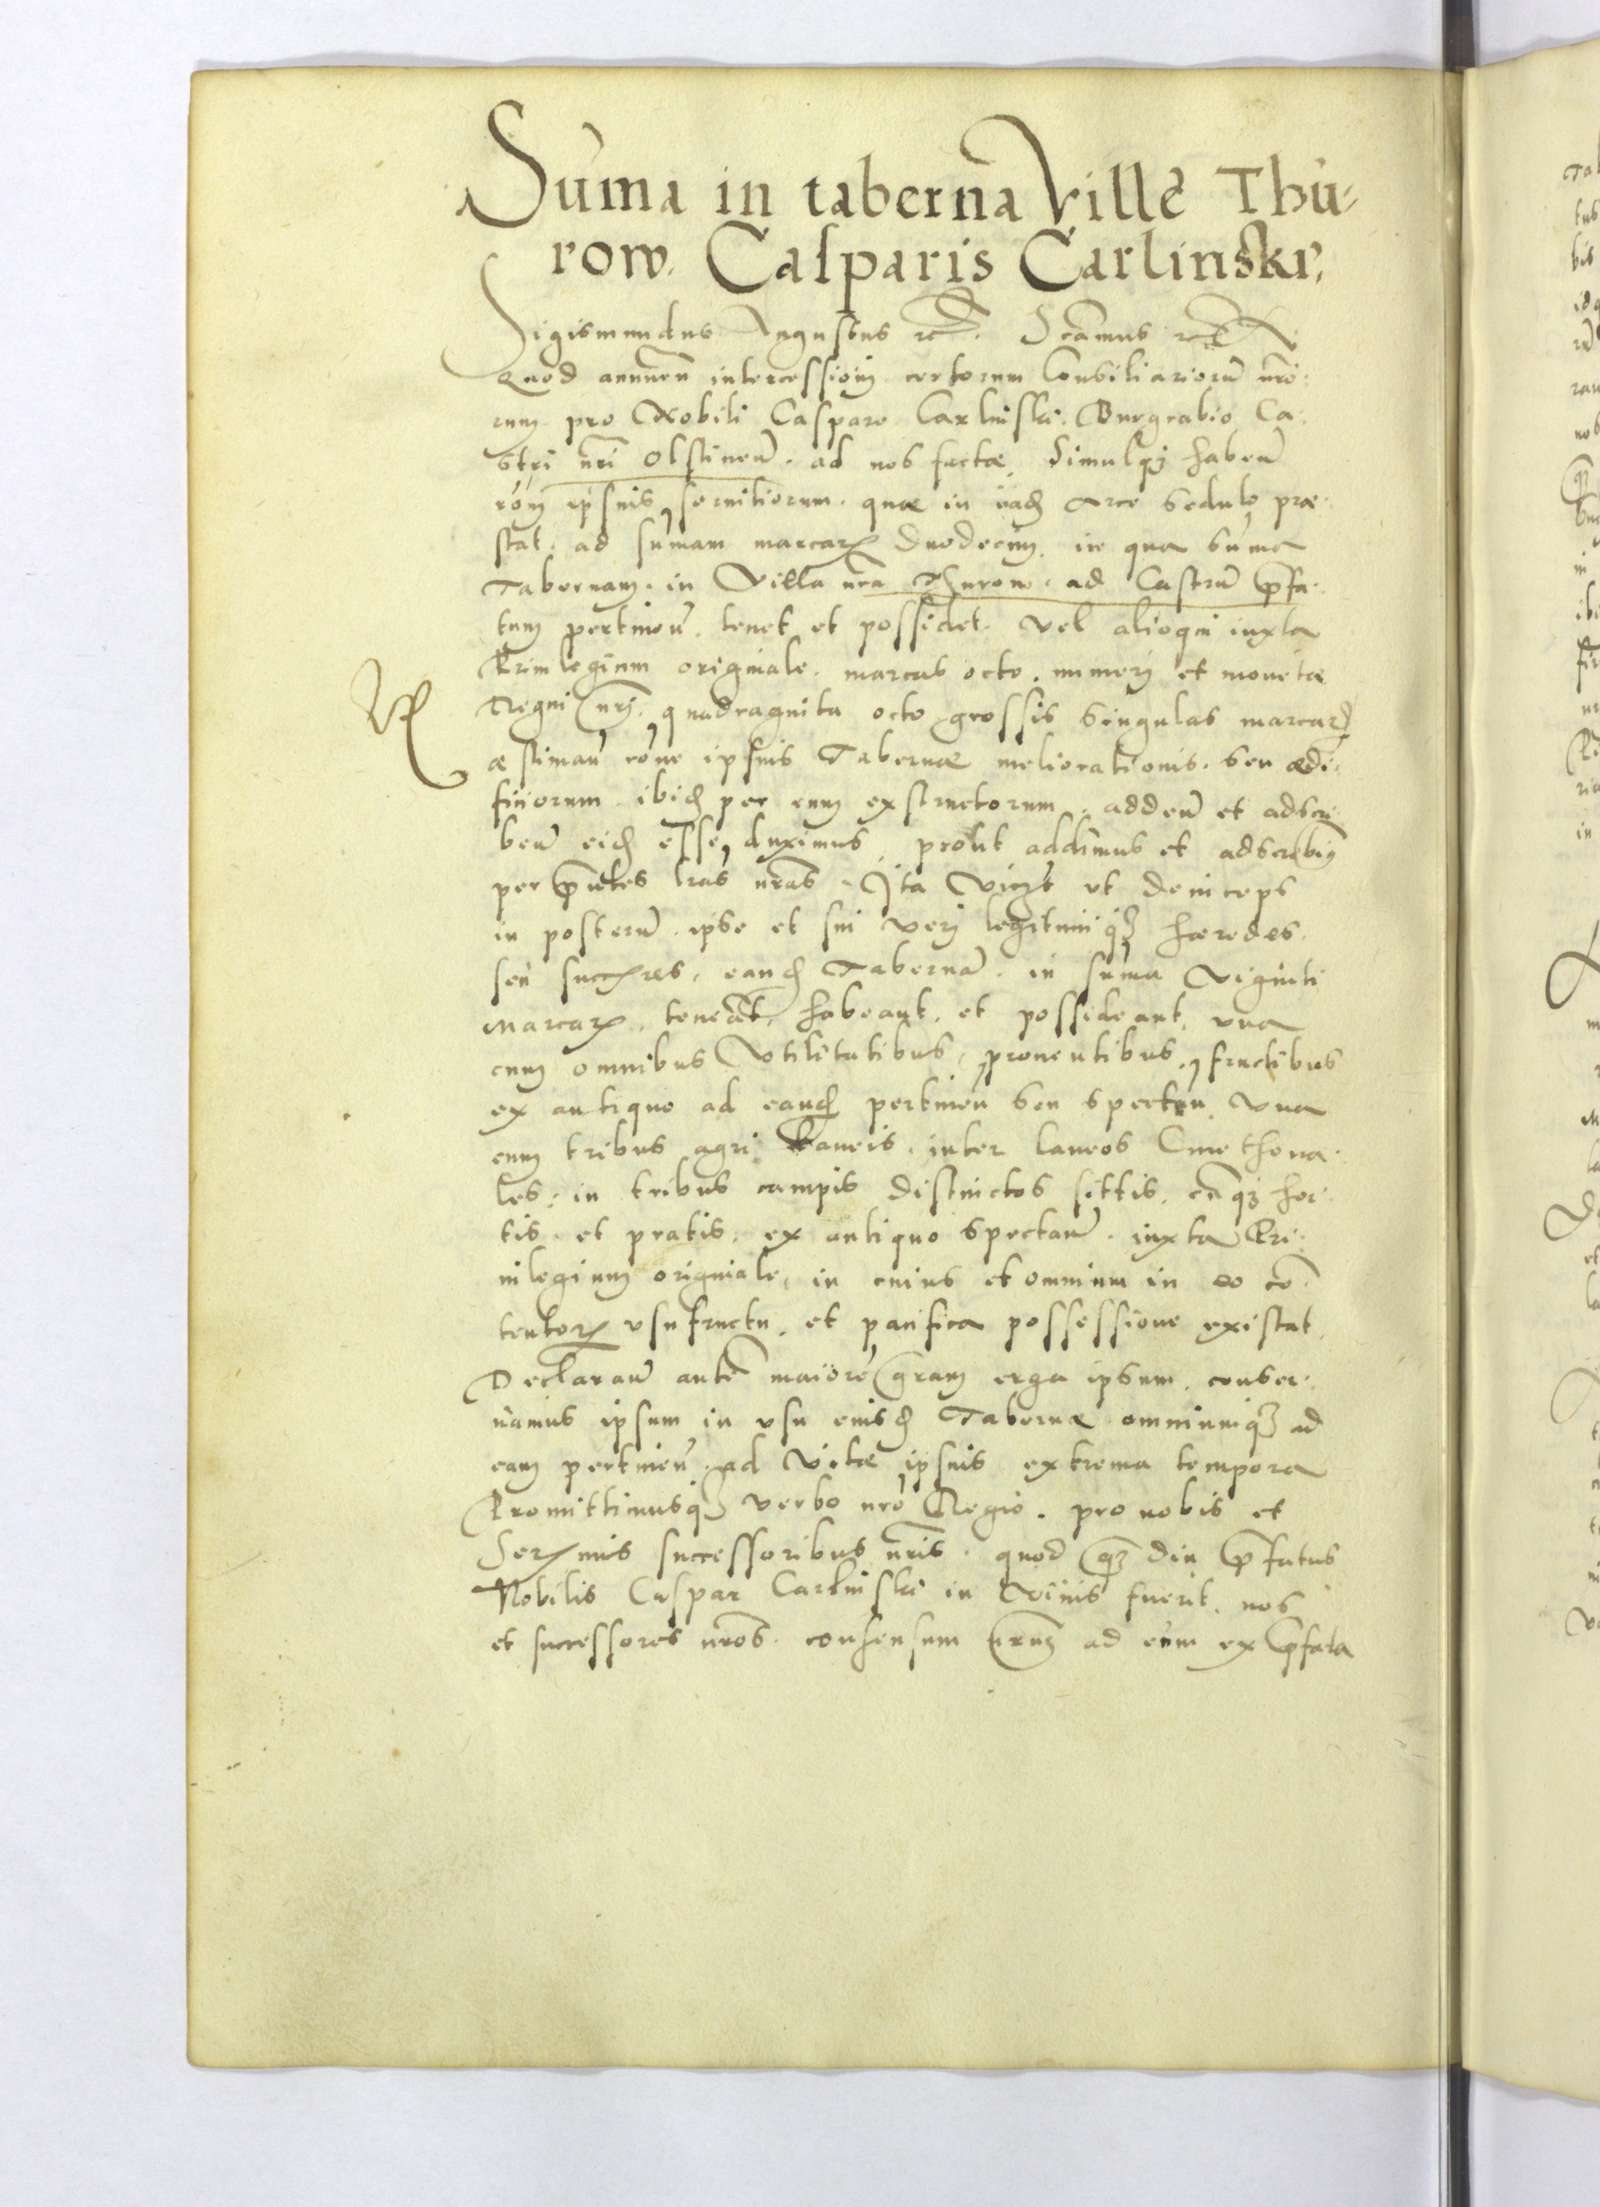 Suma in taberna Ville Thu-
row. Casparis Carlinski.
Sigismundus Augustus etc. Scamus etc.
Quod annuen intercessioni certorum Consiliariorũ nro-
rum pro Nobili Caspare Carlinski. Burgrabio Ca-
stri nri Olstinen. ad nos factæ. Simulq; haben
rõnẽ ipsius servitiorum. quæ in eadẽ Arce sedulo præ-
stat. ad sumam marcarum duodecim. in qua suma
Tabernam. in Villa nra Thurow. ad Castrũ pfa-
tum pertinen. tenet et possidet. vel alioqui iuxta
Privilegium originale. marcas octo. numeri et monetæ
Regni nri. quadraginta octo grossis singulas marcas
æstimañ rõne ipsius Tabernæ meliorationis. seu ædi-
ficiorum ibidẽ per eum exstructorum. adden et adscri-
ben eidẽ esse duximus. prout addimus et adscribimus
per pntes lras nras. Ita videlicet ut deinceps
in posterũ ipse et sui veri legitimiq; hæredes
seu succres. eandẽ Tabernã. in suma viginti
marcarum. teneãt. habeant. et possideant. vna
cum omnibus vtilitatibus. proventibus. fructibus
ex antiquo ad eandẽ pertinen seu specten. Vna
cum tribus agri laneis. inter laneos Cmethona-
les. in tribus campis distinctos sittis. cũq; hor-
tis. et pratis. ex antiquo spectan. iuxta Pri-
vilegium originale. in cuius et omnium in eo cõ-
tentorum vsufructu. et pacifica possessione existat.
Declaran autẽ maiorẽ gram erga ipsum. conser-
vamus ipsum in vsu eiusdẽ Tabernæ omniumq; ad
eam pertinen. ad vitæ ipsius extrema tempora
Promittimusq; verbo nro Regio. pro nobis et
Serenmis successoribus nris. quod q; diu pfatus
Nobilis Caspar Carlinski in vivis fuerit. nos
et successores nros. consensum nrum ad eum ex pfata